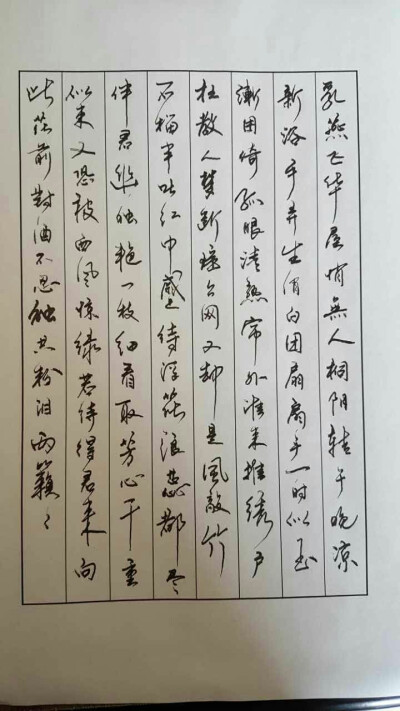 乳燕飞华屋悄無人桐阴转午晚凉
新浴手弄生绡白团扇扇手一时似玉
渐困倚孤眠清熟帘外谁来推绣户
枉教人梦断瑶台曲又却是風敲竹
石榴半吐红巾蹙待浮花浪蕊都尽
伴君幽独艳一枝细看取芳心千重
似束又恐被西風惊绿若待得君来向
此花前對酒不忍触共粉泪两簌々